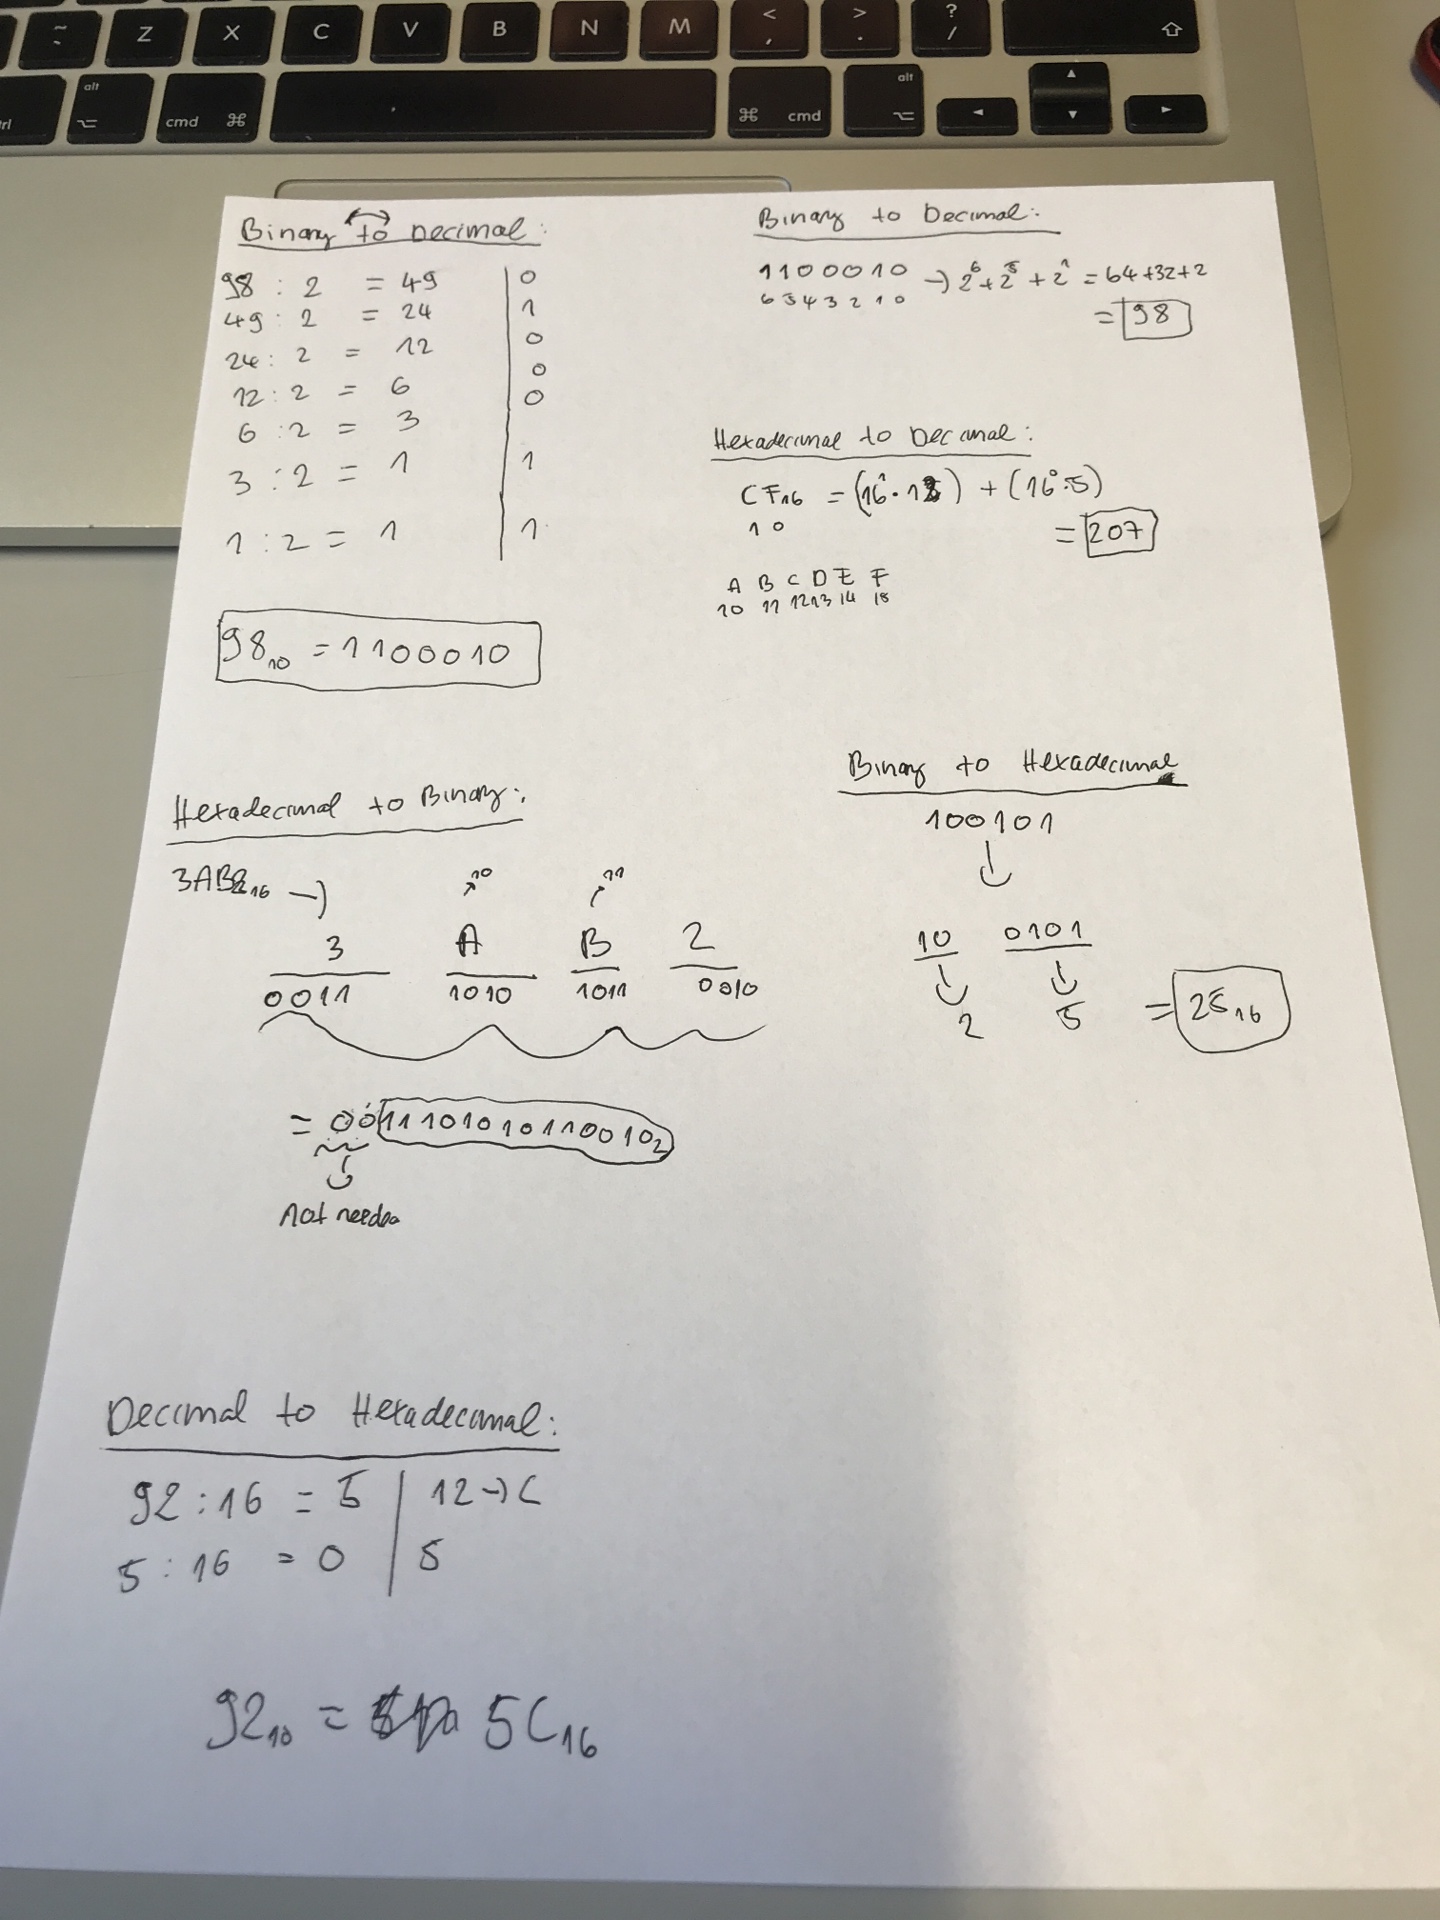 ~ Z X C V B N M < , > . ? /
alt cmd ⌘ ⌘ cmd alt
Binary to Decimal:
98 : 2 = 49 | 0
49 : 2 = 24 | 1
24 : 2 = 12 | 0
12 : 2 = 6 | 0
6 : 2 = 3 | 0
3 : 2 = 1 | 1
1 : 2 = 1 | 1
98₁₀ = 1100010
Binary to Decimal:
1100010 → 2⁶ + 2⁵ + 2¹ = 64+32+2
6 5 4 3 2 1 0
= 98
Hexadecimal to Decimal:
CF₁₆ = (16¹ · 12) + (16⁰ · 5)
1 0
= 207
A B C D E F
10 11 12 13 14 15
Hexadecimal to Binary:
3AB2₁₆ →
10 11
3 A B 2
0011 1010 1011 0010
= 0011101010110010₂
not needed
Binary to Hexadecimal
100101
10 0101
2 5 = 25₁₆
Decimal to Hexadecimal:
92 : 16 = 5 | 12 → C
5 : 16 = 0 | 5
92₁₀ = 5C₁₆